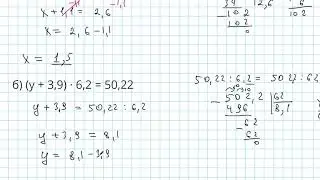 x + 1,1 = 2,6
-1,1
x = 2,6 - 1,1
x = 1,5
102
102
0
12,6
6
102
б) (у + 3,9) · 6,2 = 50,22
50,22 : 6,2 = 50,22
у + 3,9 = 50,22 : 6,2
502,2 | 62
496 | 8,1
62
62
0
у + 3,9 = 8,1
у = 8,1 - 3,9